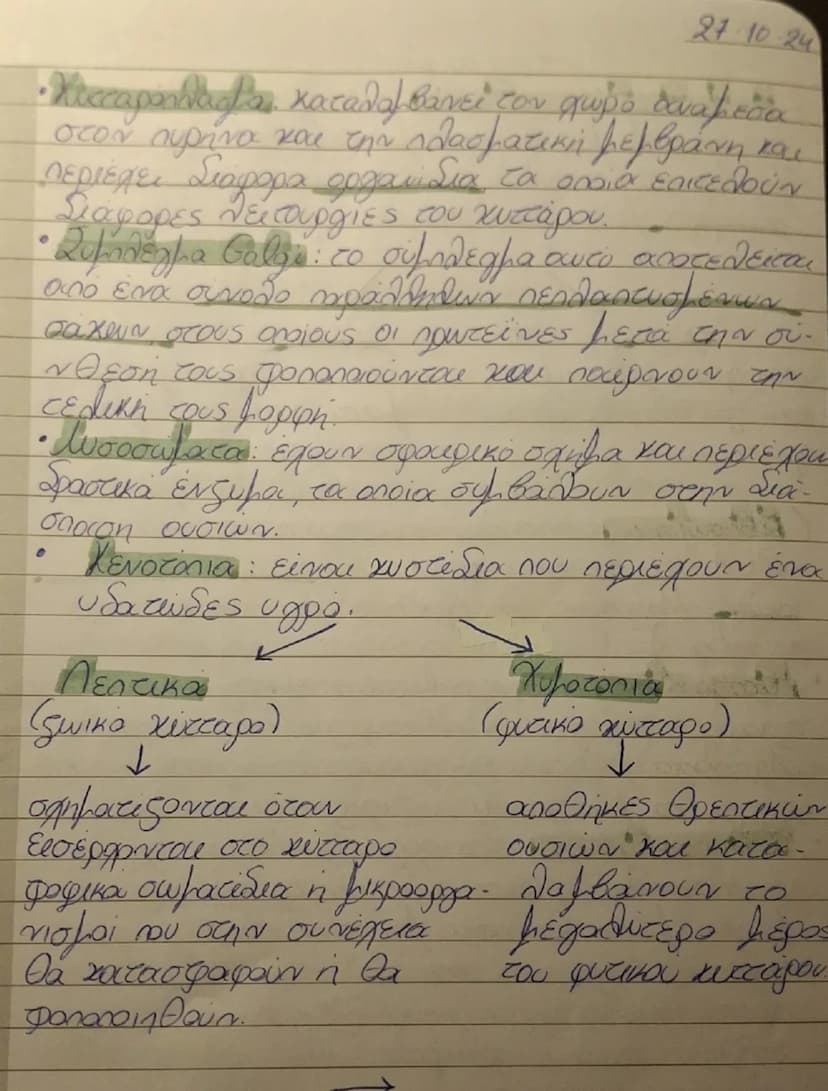 27·10·24
• Κυτταρόπλασμα: καταλαμβάνει τον χώρο ανάμεσα
στον πυρήνα και την πλασματική μεμβράνη και
περιέχει διάφορα οργανίδια τα οποία επιτελούν
διάφορες λειτουργίες του κυττάρου.
• Σύμπλεγμα Golgi: το σύμπλεγμα αυτό αποτελείται
από ένα σύνολο παράλληλων πεπλατυσμένων
σάκων στους οποίους οι πρωτεΐνες μετά την σύ-
νθεσή τους τροποποιούνται και παίρνουν την
τελική τους μορφή.
• Λυσοσώματα: έχουν σφαιρικό σχήμα και περιέχουν
δραστικά ένζυμα, τα οποία συμβάλουν στην διά-
σπαση ουσιών.
• Κενοτόπια: είναι κυστίδια που περιέχουν ένα
υδατώδες υγρό.
Πεπτικά Χυμοτόπια
(ζωικό κύτταρο) (φυτικό κύτταρο)
σχηματίζονται όταν αποθήκες θρεπτικών
εισέρχονται στο κύτταρο ουσιών και κατα-
τροφικά σωματίδια ή μικροοργα- λαμβάνουν το
νισμοί που στην συνέχεια μεγαλύτερο μέρος
θα καταστραφούν ή θα του φυτικού κυττάρου.
τροποποιηθούν.